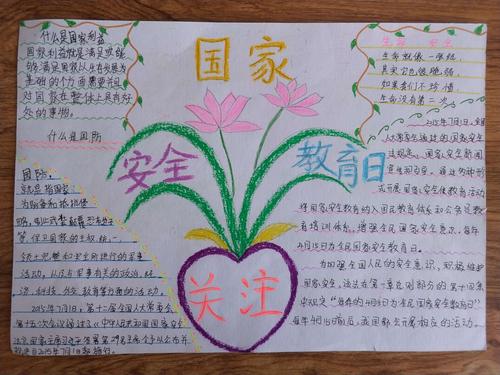 国家
安全
教育日
关注
什么是国家利益
国家利益就是满足或能
够满足国家以生存发展为
基础的各方面需要并且
对国家在整体上是有好
处的事物。
什么是国防
国防，
就是指国家
为防备和抵抗侵
略，制止武装颠覆
保卫国家的主权、统一、
领土完整和安全所进行的军事
活动，以及与军事有关的政治、经
济、科技、外交、教育等方面的活动。
2015年7月1日，第十二届全国人大常委会
第十五次会议通过《中华人民共和国国家安全
法
2015年7月1日起施行。
生命 安全
生命就像一张纸，
其实它也很脆弱，
如果我们不珍惜，
生命没有第二次。
2015年7月1日，全国
人大常委会通过的国家安全
法规定，国家安全新闻
宣传和
式开展国家安全宣传教育活动
将国家安全教育纳入国民教育体系和公务员教
育培训体系，增强全民国家安全意识。每年
4月15日为全民国家安全教育日。
为加强全国人民的安全意识，积极维护
国家安全，
规定"每年的4月15日为全民国家安全教育日"
每年4月15日前后，我国都会开展相应的活动。